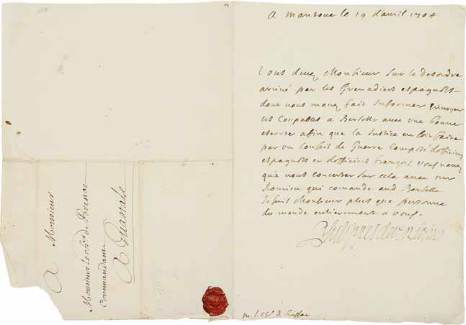 A mansoue le 19 d'avril 1704
Vous devez Monsieur sur le desordre
arrivé par les Grenadiers espagnols
dont vous m'avez fait informer
les Coupables a Berselle avec une bonne
escorte affin que la Justice en soit faite
par un Conseil de Guerre Composé d'officiers
espagnols et d'officiers françois vous n'avez
qu'a vous concerter sur cela avec mr
qui comande and Berselle
Je suis Monsieur plus que personne
du monde entierement a vous
A Monsieur
Monsieur le de
Commandant
A Guastale